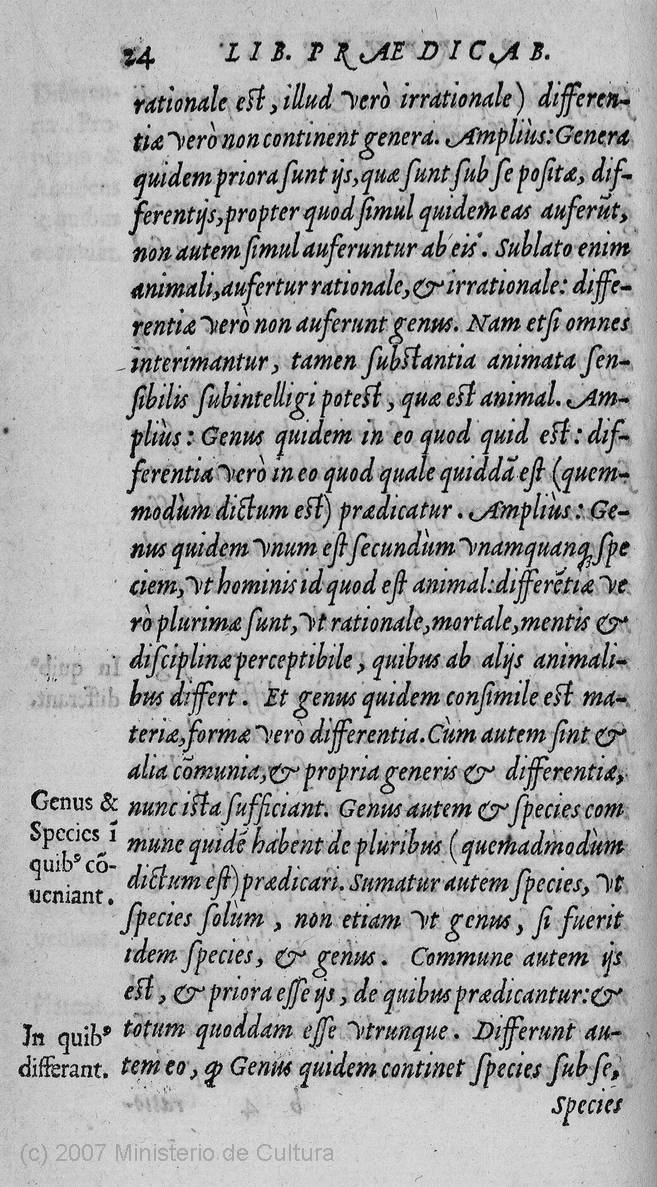 24 LIB. PRÆDICAB.
rationale est, illud verò irrationale) differen-
tiæ verò non continent genera. Ampliùs: Genera
quidem priora sunt ijs, quæ sunt sub se positæ, dif-
ferentijs, propter quod simul quidem eas auferūt,
non autem simul auferuntur ab eis. Sublato enim
animali, aufertur rationale, & irrationale: diffe-
rentiæ verò non auferunt genus. Nam etsi omnes
interimantur, tamen substantia animata sen-
sibilis subintelligi potest, quæ est animal. Am-
pliùs: Genus quidem in eo quod quid est: dif-
ferentia verò in eo quod quale quiddā est (quem-
modùm dictum est) prædicatur. Ampliùs: Ge-
nus quidem vnum est secundùm vnamquanq; spe
ciem, vt hominis id quod est animal: differētiæ ve
rò plurimæ sunt, vt rationale, mortale, mentis &
disciplinæ perceptibile, quibus ab alijs animali-
bus differt. Et genus quidem consimile est ma-
teriæ, formæ verò differentia. Cùm autem sint &
alia cōmunia, & propria generis & differentiæ,
nunc ista sufficiant. Genus autem & species com
mune quidē habent de pluribus (quemadmodùm
dictum est) prædicari. Sumatur autem species, vt
species solùm, non etiam vt genus, si fuerit
idem species, & genus. Commune autem ijs
est, & priora esse ijs, de quibus prædicantur: &
totum quoddam esse vtrunque. Differunt au-
tem eo, ꝙ Genus quidem continet species sub se,
Species
Genus &
Species ī
quibꝰ cō-
ueniant.
In quibꝰ
differant.
(c) 2007 Ministerio de Cultura